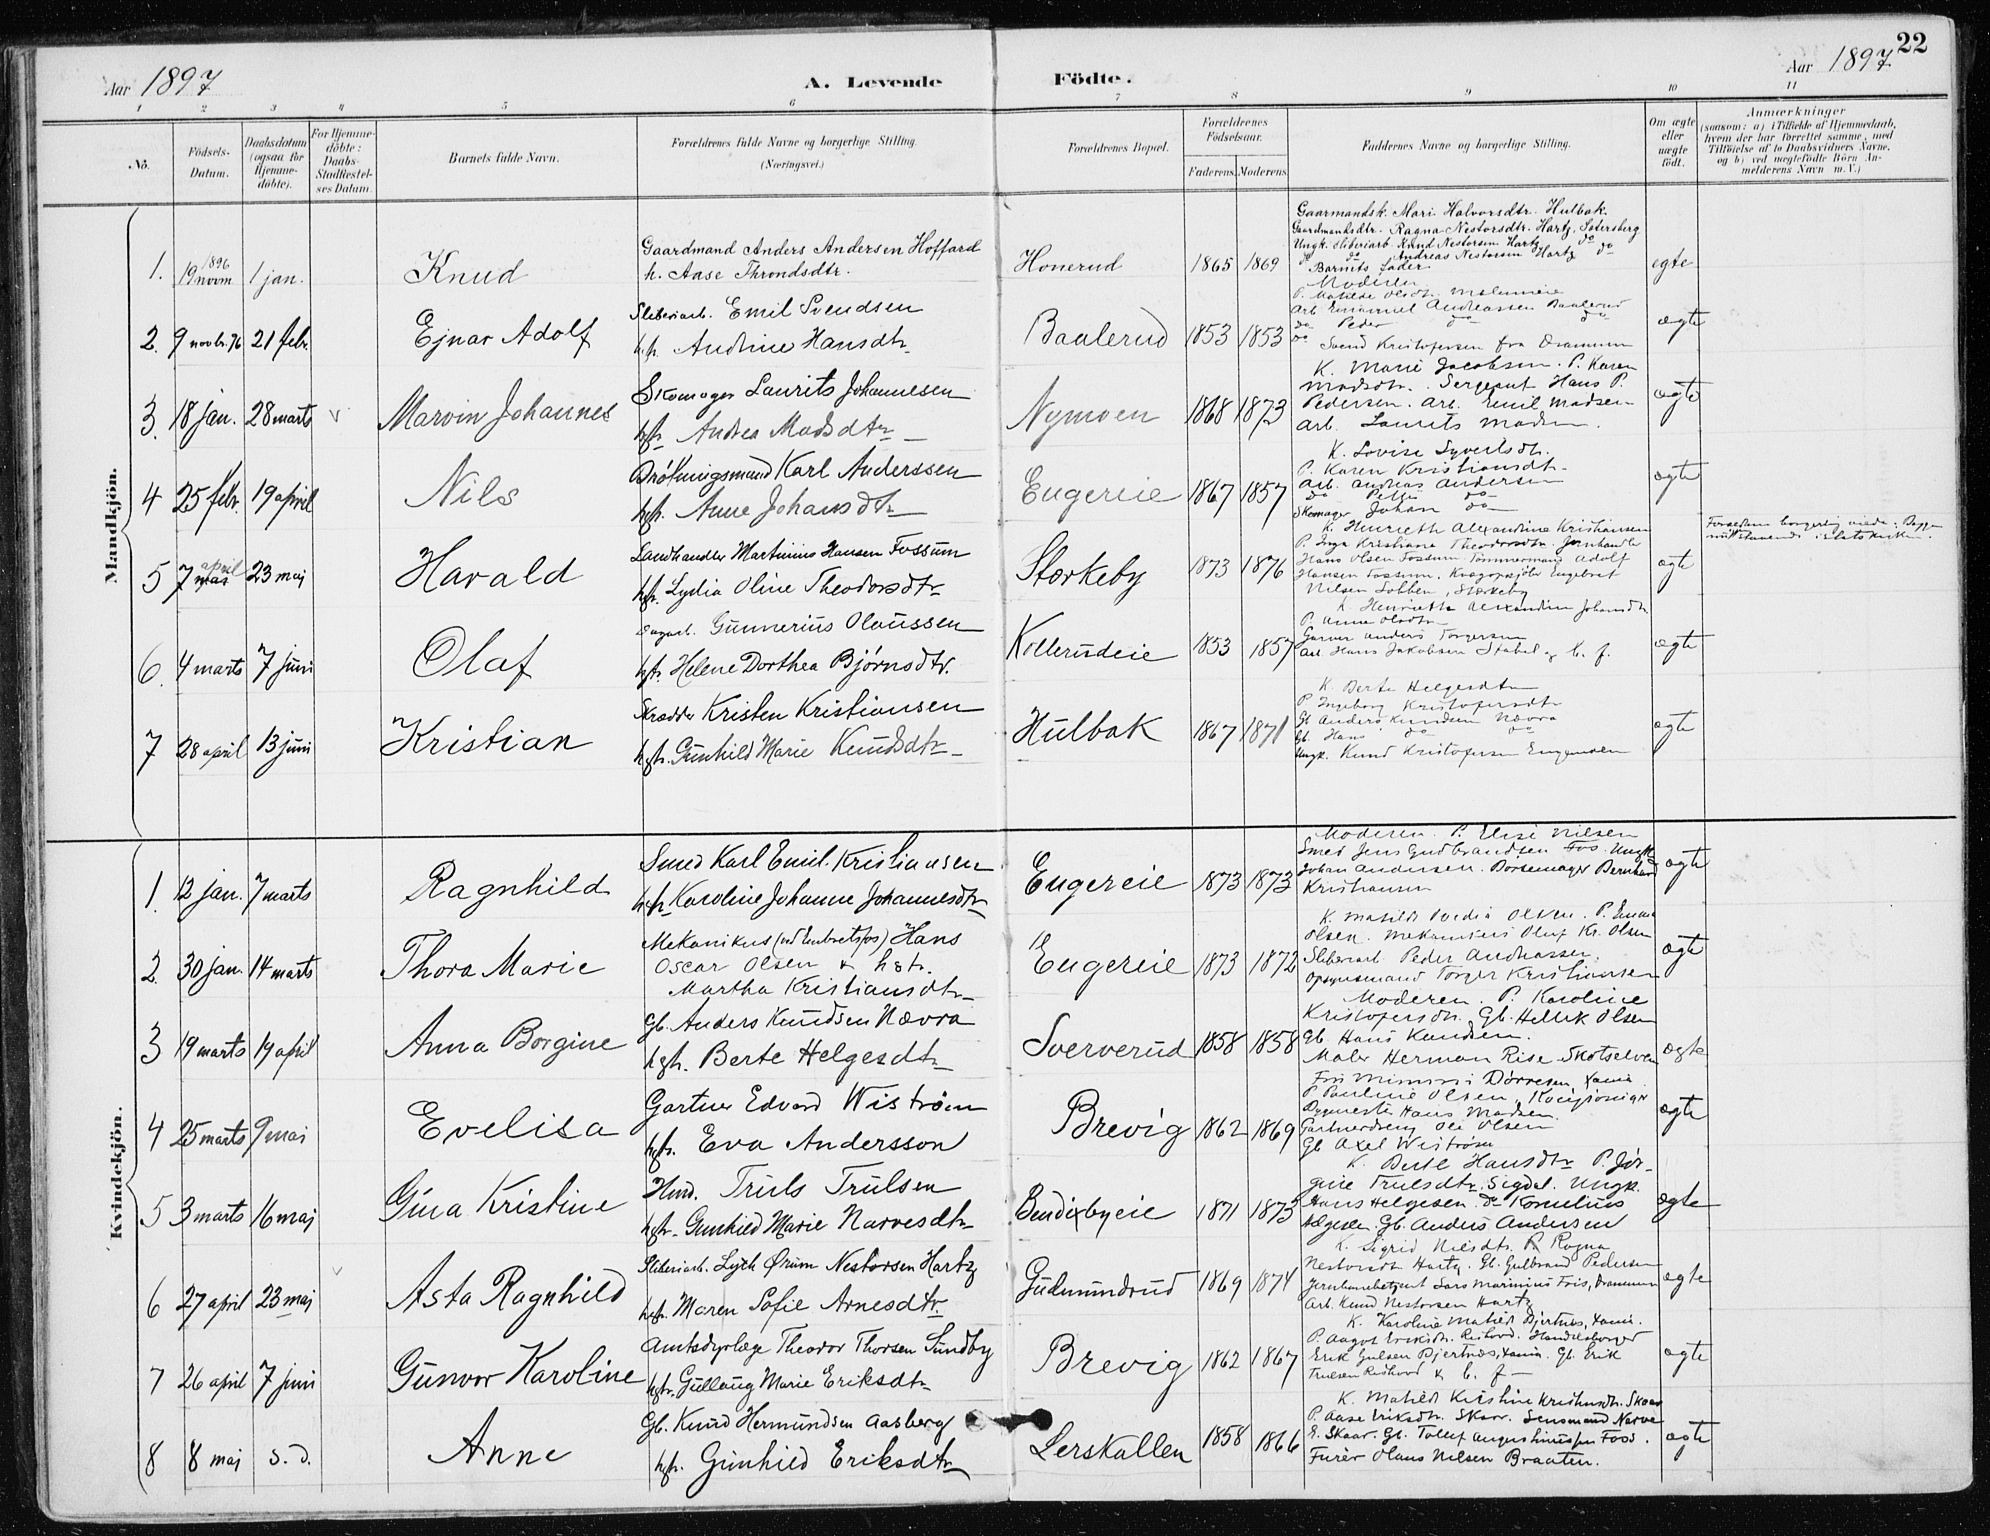 22
Aar 1897
A. Levende Födte.
Aar 1897
1 2 3 4 5 6 7 8 9 10 11
No.
Födsels-Datum.
Daabsdatum (ogsaa for Hjemme-döbte).
For Hjemme-döbte: Daabs-Stadfæstel-ses Datum.
Barnets fulde Navn.
Forældrenes fulde Navne og borgerlige Stilling. (Næringsvei.)
Forældrenes Bopæl.
Forældrenes Födselsaar.
Faderens. Moderens.
Faddernes Navne og borgerlige Stilling.
Om ægte eller uægte födt.
Anmærkninger
(saasom: a) i Tilfælde af Hjemmedaab, hvem der har forrettet samme, med Tilföielse af to Daabsvidners Navne, og b) ved uægtefödte Börn An-melderens Navn m. V.)
Mandkjön.
1. 1896 19 novm 1 jan. Knud
Gaardmand Anders Andersen Hoffard
h. Aase Throndsdtr.
Honerud 1865 1869
Gaarmandsk. Mari Halvorsdtr. Hulbak.
Gaardmandsdtr. Ragna Nestorsdtr. Hartz, Sætersberg
Ungk. sliberiarb. Knud Nestorsen Hartz do
do do Andreas Nestorsen Hartz do
Barnets fader
egte
2. 9 novbr. 96 21 febr. Ejnar Adolf
Sliberiarb. Emil Svendsen
h. Andrine Hansdtr.
Baalerud 1853 1853
Moderen
P. Matilde Olsdtr.
Arb. Emanuel Andreassen Baalerud
do Peder do do
do Svend Kristofersen fra Drammen
ægte
3. 18 jan. 28 marts v Marvin Johannes
Skomager Laurits Johannesen
hst. Andrea Madsdtr
Nymoen 1868 1873
K. Marie Jacobsen. P. Karen
Madsdtr. Sergeant Hans P.
Pedersen. Arb. Emil Madsen
Arb. Laurits Madsen.
ægte
4 25 febr. 19 april Nils
Brøtningsmand Karl Anderssen
hst. Anne Johansdtr
Engereie 1867 1857
K. Lovise Syvertsdtr.
P. Karen Kristiansdtr.
Arb. Andreas Andersen
do Petter do
Skomager Johan do
ægte
5 7 april 23 maj Harald
Landhandler Martinius Hansen Fossum
hst. Lydia Oline Theodorsdtr
Størkeby 1873 1876
K. Henriette Alexandrine Kristiansen
P. Inga Kristiane Theodorsdtr. Jernhandler
Hans Olsen Fossum Tømmermand Adolf
Hansen Fossum. Engebret
Nilsen Lobben, Størkeby
ægte
6. 4 marts 7 juni Olaf
Dagarb. Gunnerius Olaussen
hst. Helene Dorthea Bjørnsdtr.
Kollerudeie 1853 1857
K. Henriette Alexandrine Johansdtr
P. Anne Olsdtr
Garver Anders Torgersen
Arb. Hans Jakobsen Stabel og b. f.
ægte
7 28 april 13 juni Kristian
Skrædder Kristen Kristiansen
hst. Gunhild Marie Knudsdtr
Hulbak 1867 1871
K. Berte Helgesdtr
P. Ingeborg Kristofersdtr
Gb. Anders Knudsen Nævra
Gb. Hans do do
Ungk. Knud Kristofersen
ægte
Kvindekjön.
1. 12 jan. 7 marts Ragnhild
Smed Karl Emil Kristiansen
hst. Karoline Johanne Johannesdtr
Engereie 1873 1873
Moderen. P. Elise Nilsen
Smed Jens Gudbrandsen Fos. Ungk.
Johan Andersen. Børsemager Bernhard
Kristiansen
ægte
2. 30 jan. 14 marts Thora Marie
Mekanikus (ved Embretsfos) Hans
Oscar Olsen & hst.
Martha Kristiansdtr
Engereie 1873 1872
K. Matilde Olsen. P. Emma
Olsen. Mekanikus Oluf Kr. Olsen
Sliberiarb Peder Andreassen.
Opsynsmand Torger Kristiansen
ægte
3 19 marts 19 april Anna Borgine
Gb. Anders Knudsen Nævra
hst. Berte Helgesdtr
Sververud 1858 1858
Moderen. P. Karoline
Kristofersdtr. Gb. Hellik Olsen
Gb. Hans Knudsen.
Maler Herman Rise Skotselven
ægte
4 25 marts 9 maj Evelisa
Gartner Edvard Wistrøm
hst. Eva Andersson
Brevig 1862 1869
P. Pauline Olsen,
Hans Madsen.
Gartnerdreng Ole Olsen
Gb Axel Wistrøm
ægte
5 3 marts 16 maj Gina Kristine
Hmd. Truls Trulsen
hst. Gunhild Marie Narvesdtr
Bendixbyeie 1871 1873
K. Berte Hansdtr P. Jør-
gine Trulsdtr. Sigdal. Ungk.
Hans Helgesen. do Kornelius
Helgesen. Gb. Anders Andersen
ægte
6 27 april 23 maj v Asta Ragnhild
Sliberiarb. Ørum Nestorsen Hartz
hst. Maren Sofie Arnesdtr.
Gudmundrud 1869 1874
K. Sigrid Nilsdtr. P. Ragna
Nestorsdtr Hartz. Gb. Gulbrand Pedersen
Lars Marinius Friis, Drammen
Arb. Knud Nestorsen Hartz
ægte
7 26 april 7 juni Gunvor Karoline
Amtsdyrlæge Theodor Thorsen Sundby
hst. Gullaug Marie Eriksdtr
Brevig 1862 1867
K. Karoline Matilde Bjertnes, Xania.
P. Aagot Eriksdtr. Rishovd. Handelsborger
Erik Gulsen Bjertnes, Xania. Gb. Erik
Trulsen Rishovd & b. f.
ægte
8 8 maj s. d. Anne
Gb. Knud Hermundsen Aasberg
hst. Gunhild Eriksdtr
Lerskallen 1858 1866
K. Matilde Kristine Kristensdtr. Skaar
P. Aase Eriksdtr. Skaar. Lensmand Narve
E. Skaar. Gb. Tollef Augustinussen Foss.
Furér Olaus Nilsen Braaten.
ægte